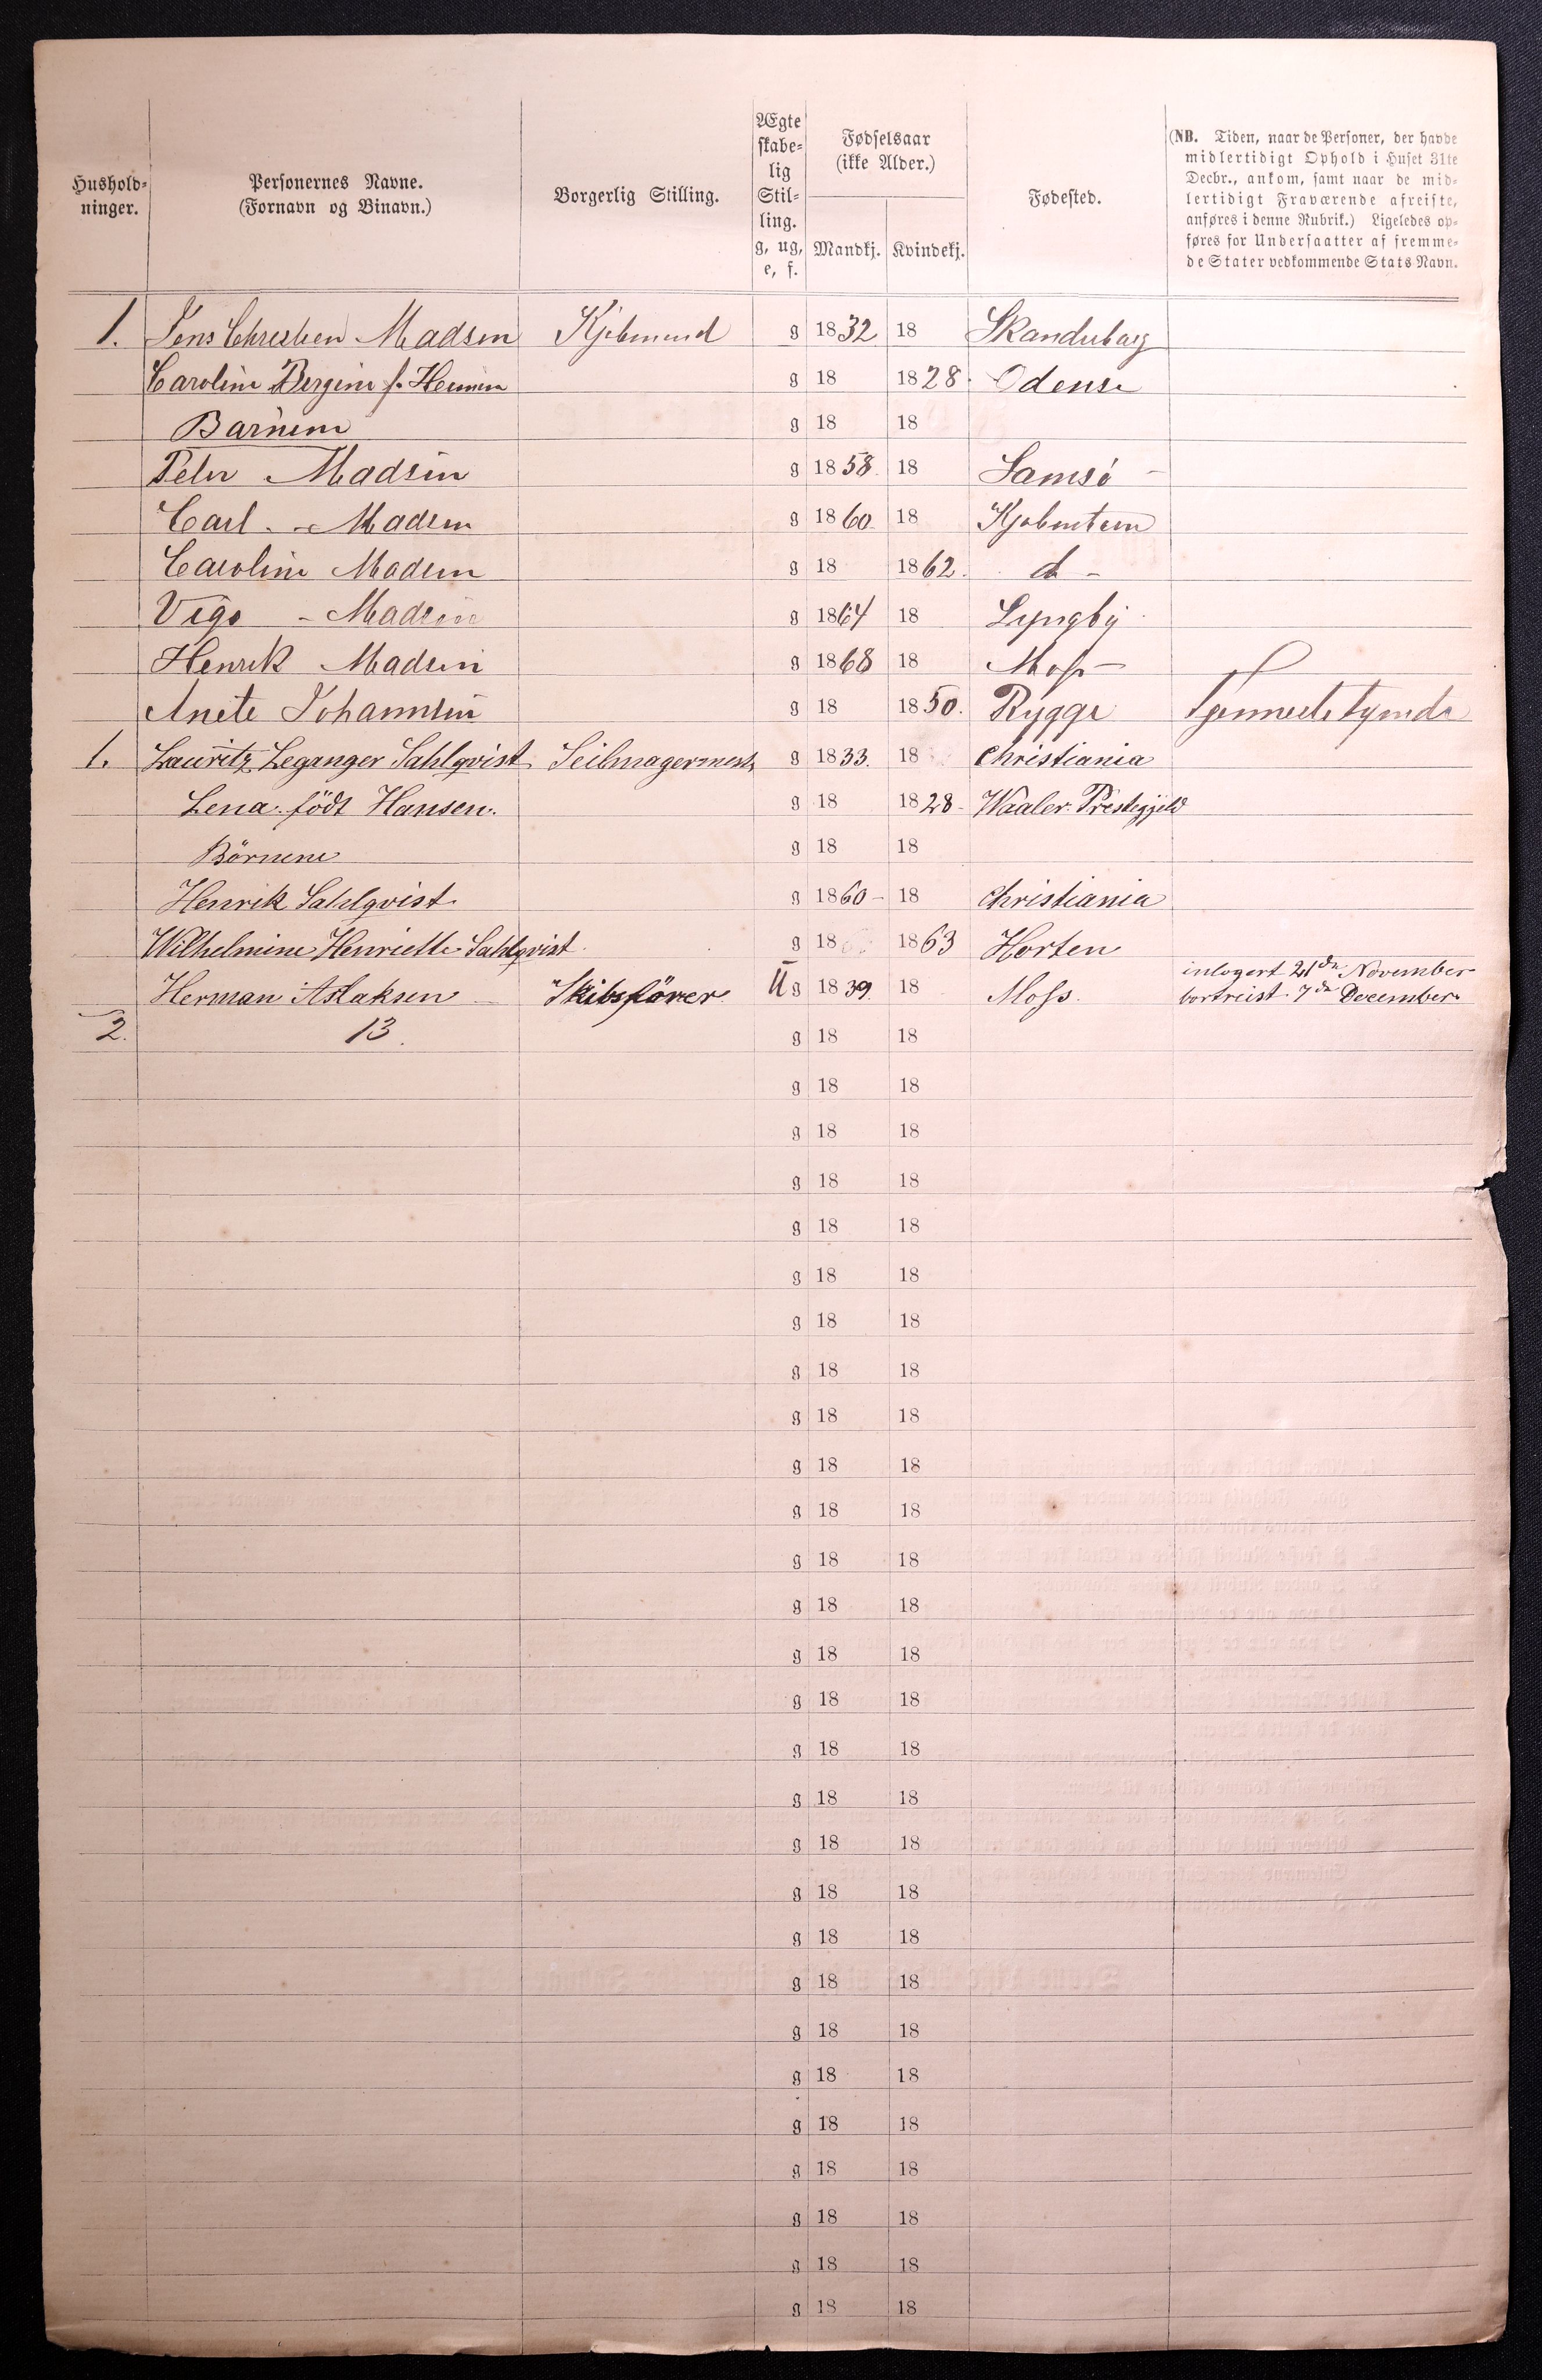 Hushold-
ninger.
Personernes Navne.
(Fornavn og Binavn.)
Borgerlig Stilling.
Ægte
skabe-
lig
Stil-
ling.
g, ug,
e, f.
Fødselsaar
(ikke Alder.)
Mandkj. Kvindekj.
Fødested.
(NB. Tiden, naar de Personer, der havde
midlertidigt Ophold i Huset 31te
Decbr., ankom, samt naar de mid-
lertidigt Fraværende afreiste,
anføres i denne Rubrik.) Ligeledes op-
føres for Undersaatter af fremme-
de Stater vedkommende Stats Navn.
1. Jens Christien Madsen Kjobmend g 1832 18 Skanderbarg
Caroline Bergine f. g 18 1828. Odense
Barnene g 18 18
Peter Madsen g 1858 18 Samsö
Carl - Madsen g 1860 18
Caroline Madsen g 18 1862. d -
Vigo - Madsen g 1864 18 Lyngby
Henrik Madsen g 1868 18 Moss
Anete Johannsen g 18 1850. Rygge
1. Lauritz Leganger Sahlqvist Seilmagermest g 1833. 18 Christiania
Lena. födt Hansen. g 18 1828 - Waaler. Prestegjeld
Börnene g 18 18
Henrik Sahlqvist. g 1860 - 18 Christiania
Wilhelmine Henriette Sahlqvist g 18 1863 Horten
Herman Aslaksen Skibsförer Ug 1839. 18 Moss. inlogert 21de November
bortreist 7de December
2. 13. g 18 18
g 18 18
g 18 18
g 18 18
g 18 18
g 18 18
g 18 18
g 18 18
g 18 18
g 18 18
g 18 18
g 18 18
g 18 18
g 18 18
g 18 18
g 18 18
g 18 18
g 18 18
g 18 18
g 18 18
g 18 18
g 18 18
g 18 18
g 18 18
g 18 18
g 18 18
g 18 18
g 18 18